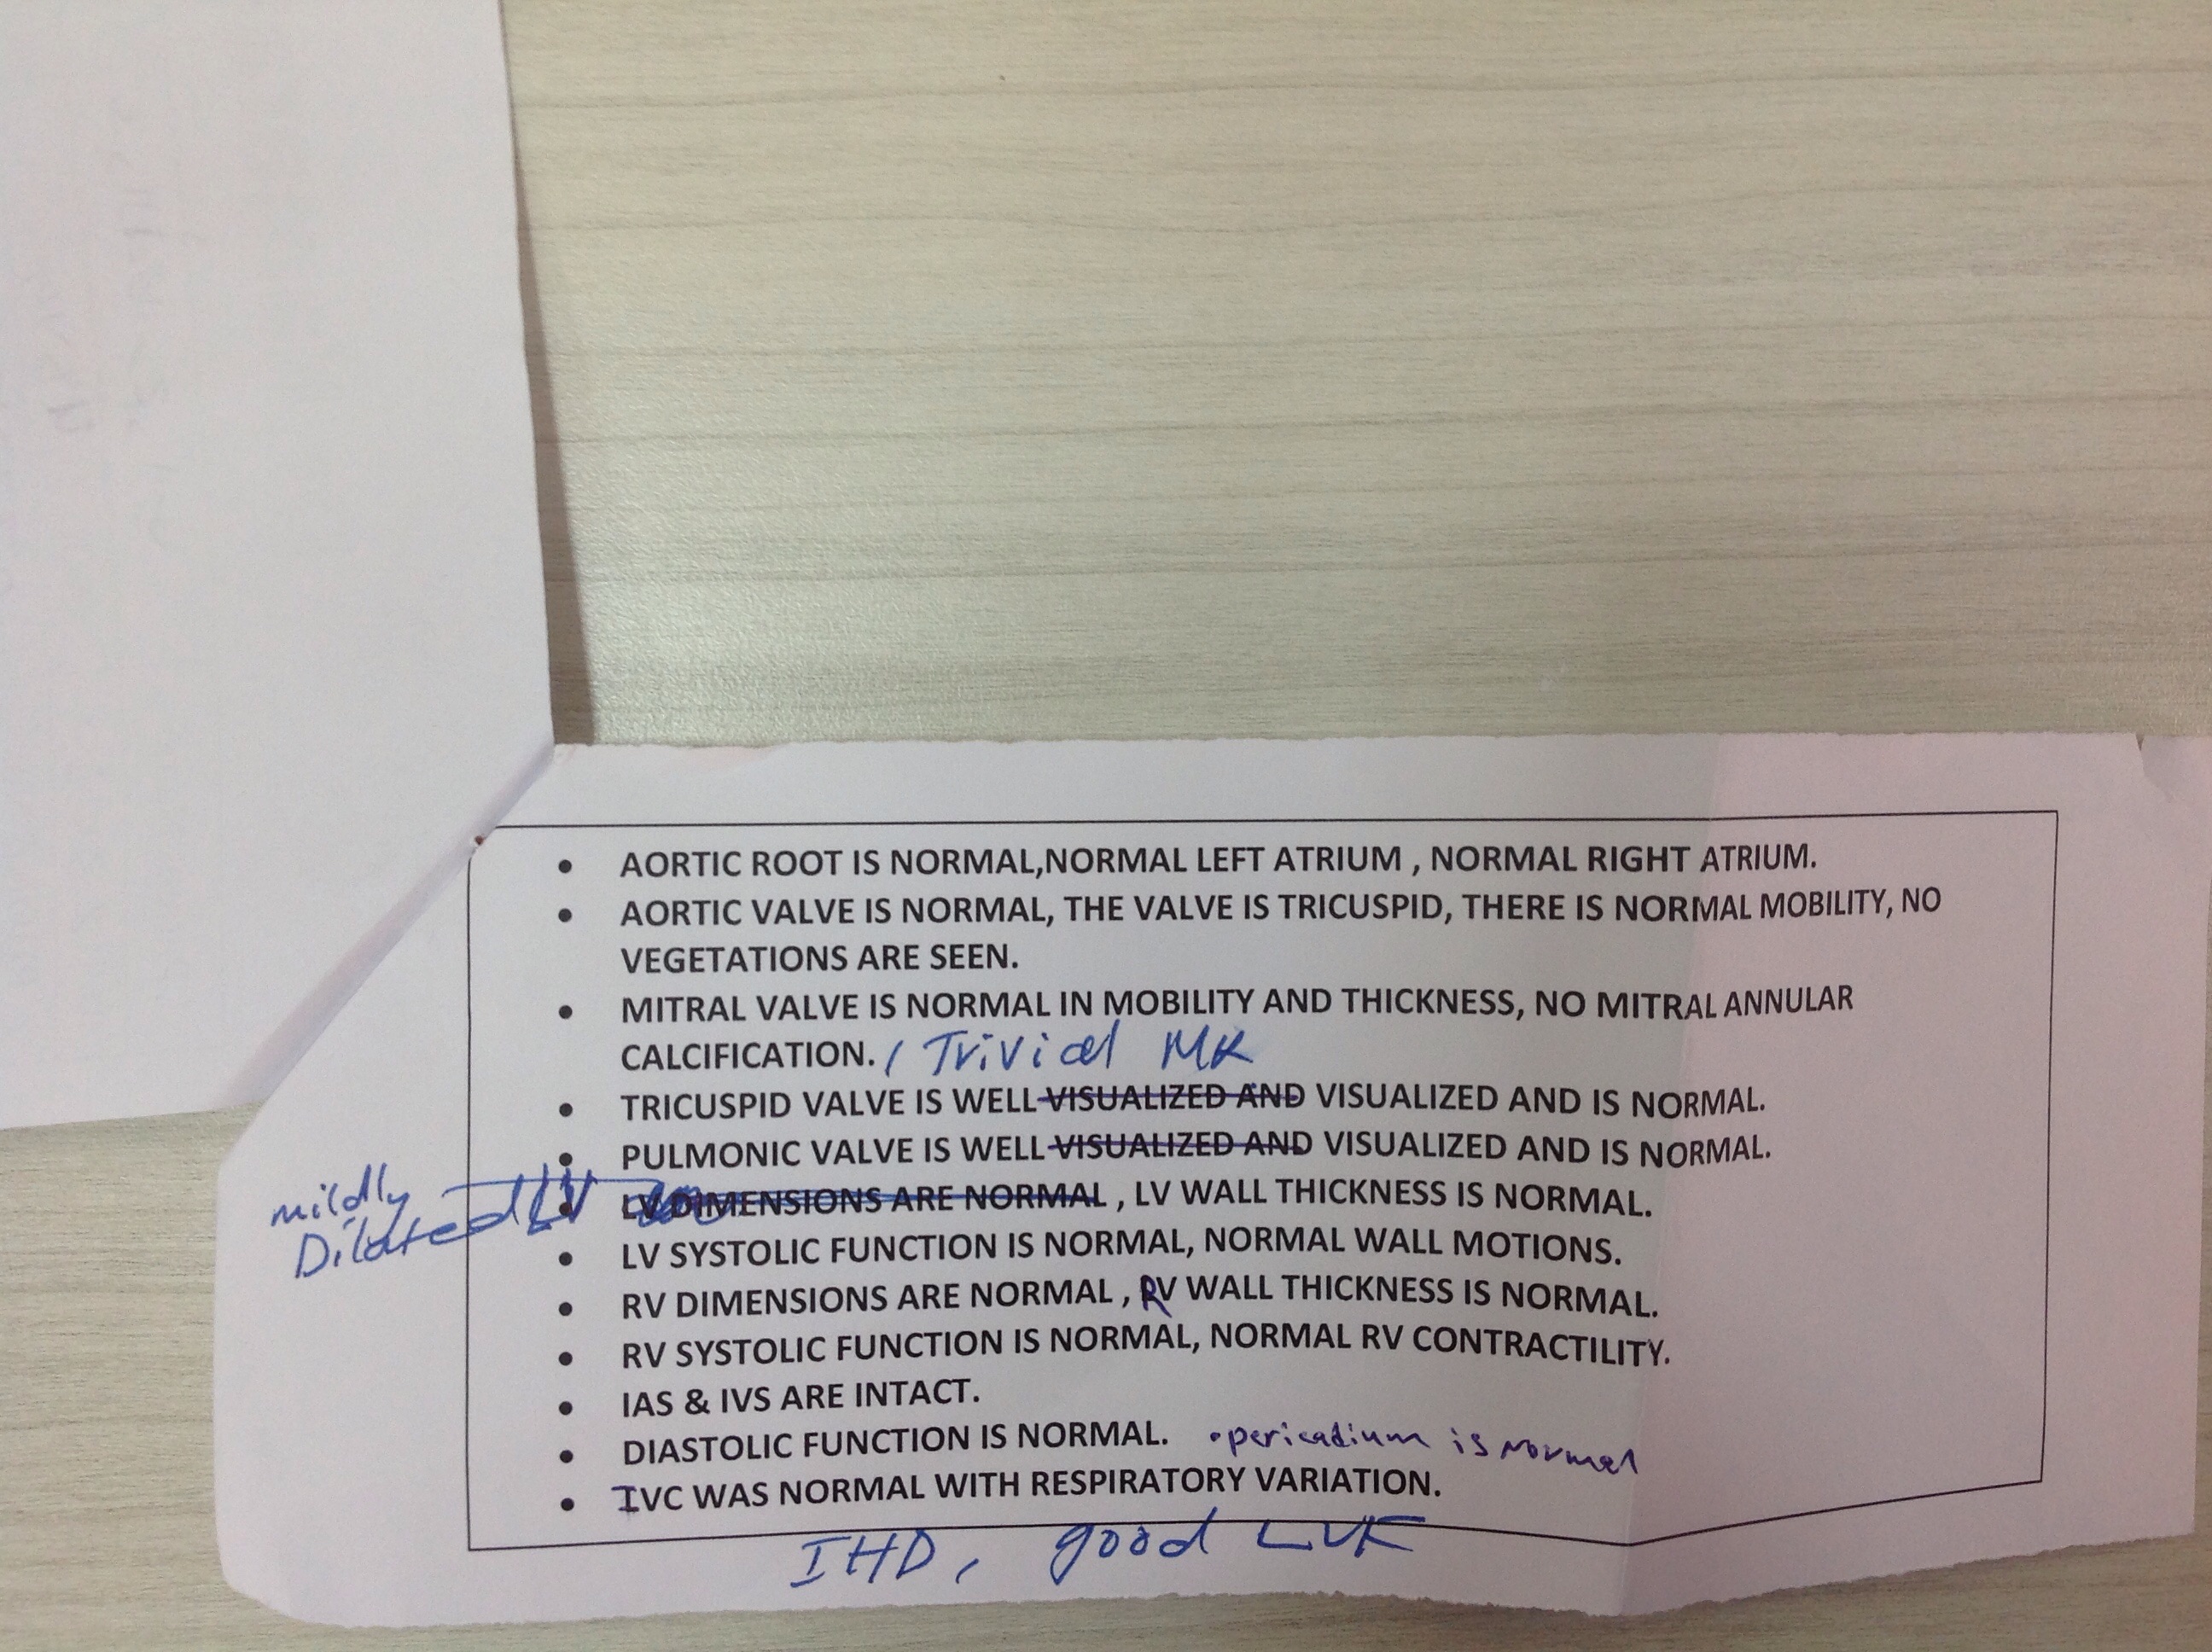 • AORTIC ROOT IS NORMAL,NORMAL LEFT ATRIUM , NORMAL RIGHT ATRIUM.
• AORTIC VALVE IS NORMAL, THE VALVE IS TRICUSPID, THERE IS NORMAL MOBILITY, NO
VEGETATIONS ARE SEEN.
• MITRAL VALVE IS NORMAL IN MOBILITY AND THICKNESS, NO MITRAL ANNULAR
CALCIFICATION. / Trivial MR
• TRICUSPID VALVE IS WELL VISUALIZED AND VISUALIZED AND IS NORMAL.
• PULMONIC VALVE IS WELL VISUALIZED AND VISUALIZED AND IS NORMAL.
mildly
Dilated LV
• LV DIMENSIONS ARE NORMAL , LV WALL THICKNESS IS NORMAL.
• LV SYSTOLIC FUNCTION IS NORMAL, NORMAL WALL MOTIONS.
• RV DIMENSIONS ARE NORMAL , RV WALL THICKNESS IS NORMAL.
• RV SYSTOLIC FUNCTION IS NORMAL, NORMAL RV CONTRACTILITY.
• IAS & IVS ARE INTACT.
• DIASTOLIC FUNCTION IS NORMAL. • pericadium is normal
• IVC WAS NORMAL WITH RESPIRATORY VARIATION.
IHD, good LVF